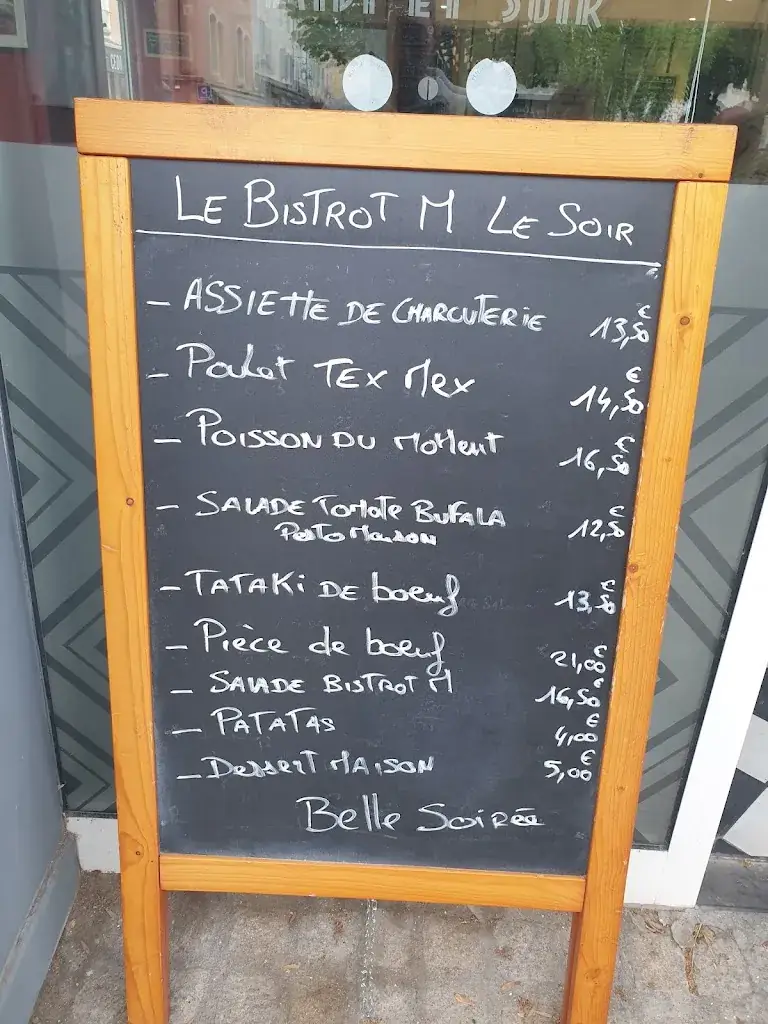 MIDI ET SOIR
LE BISTROT M LE SOIR
- ASSIETTE DE CHARCUTERIE 13,50 €
- Poulet TEX MEX 14,50 €
- POISSON DU MOMENT 16,50 €
- SALADE TOMATE BUFALA 12,50 €
PESTO MAISON
- TATAKI DE boeuf 13,50 €
- Pièce de boeuf 21,00 €
- SALADE BISTROT M 16,50 €
- PATATAS 4,00 €
- DESSERT MAISON 5,00 €
Belle Soirée